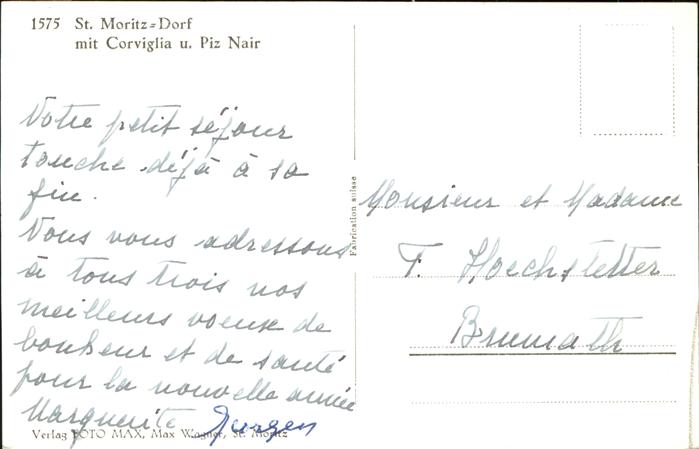 1575 St. Moritz-Dorf
mit Corviglia u. Piz Nair
Votre petit séjour
touche déjà à sa
fin.
Nous vous adressons
à tous trois nos
meilleurs voeux de
bonheur et de santé
pour la nouvelle année
Marguerite Jurgen
Verlag FOTO MAX, Max Wagner, St. Moritz
Fabrication suisse
Monsieur et Madame
F. Hoechstetter
Brumath